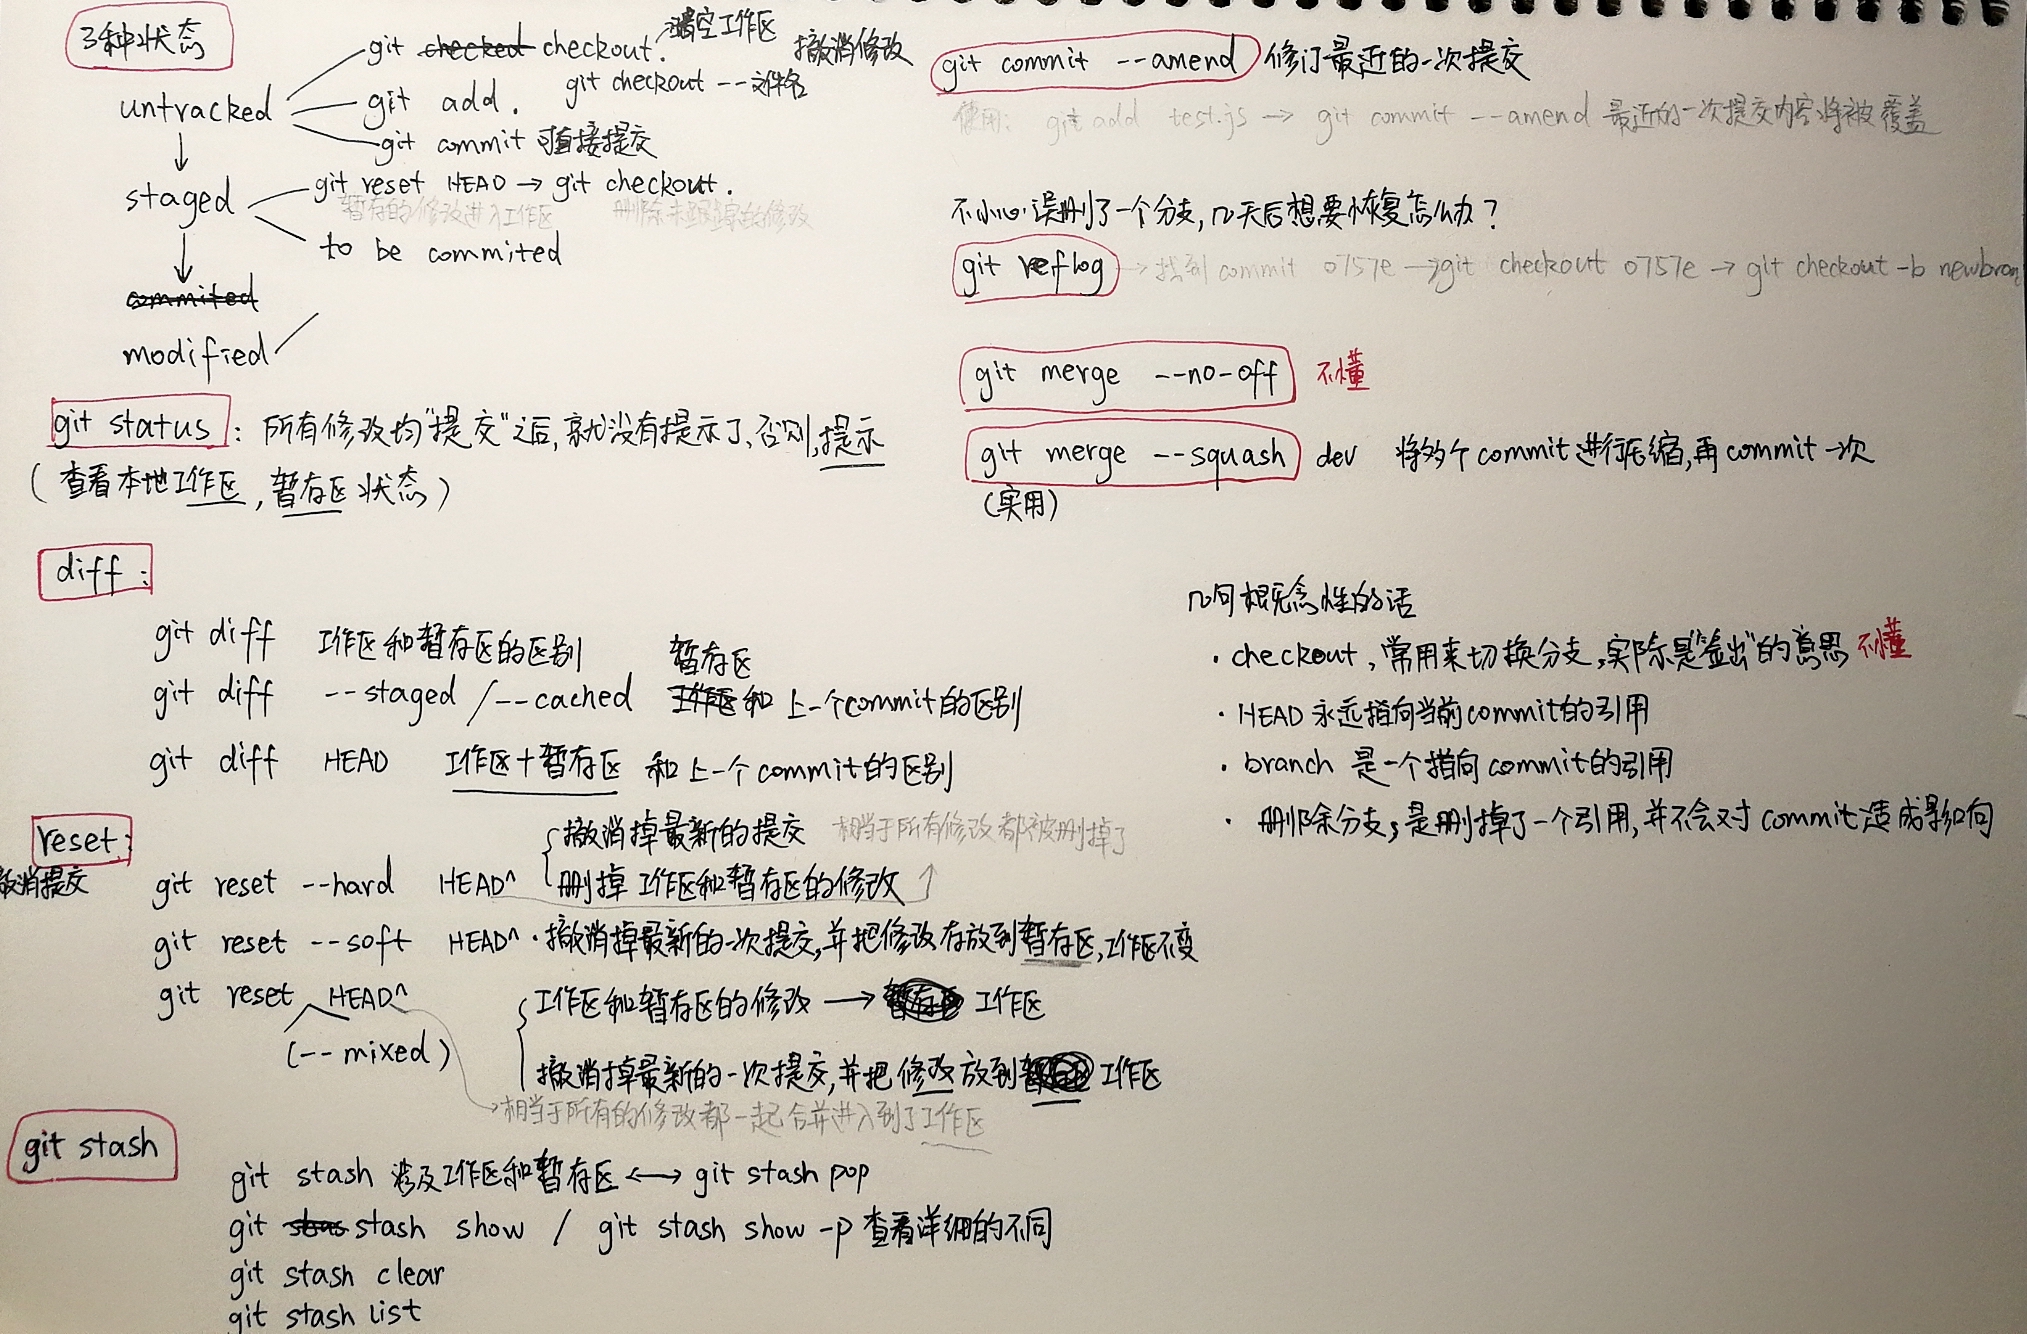 3种状态
git checked checkout. 清空工作区
撤消修改
untracked
git add. git checkout -- 文件名
git commit 可直接提交
staged
git reset HEAD → git checkout.
暂存的修改进入工作区 删除未跟踪的修改
to be commited
commited
modified
git status : 所有修改均"提交"之后,就没有提示了,否则,提示
(查看本地工作区,暂存区状态)
diff:
git diff 工作区和暂存区的区别
暂存区
git diff --staged /--cached 工作区和上一个commit的区别
git diff HEAD 工作区+暂存区 和上一个commit的区别
reset:
撤消提交
git reset --hard HEAD^
撤消掉最新的提交 相当于所有修改都被删掉了
删掉工作区和暂存区的修改
git reset --soft HEAD^ ·撤消掉最新的一次提交,并把修改存放到暂存区,工作区不变
git reset HEAD^
(--mixed)
工作区和暂存区的修改 → 暂存区 工作区
撤消掉最新的一次提交,并把修改放到 工作区
相当于所有的修改都一起合并进入到了工作区
git stash
git stash 涉及工作区和暂存区 ←→ git stash pop
git stash show / git stash show -p 查看详细的不同
git stash clear
git stash list
git commit --amend 修订最近的一次提交
使用: git add test.js → git commit --amend 最近的一次提交内容将被覆盖
不小心误删了一个分支,几天后想要恢复怎么办?
git reflog → 找到 commit 0757e → git checkout 0757e → git checkout -b newbran
git merge --no-off 不懂
git merge --squash dev 将多个commit进行压缩,再commit一次
(实用)
几句概念性的话
· checkout,常用来切换分支,实际是"签出"的意思 不懂
· HEAD 永远指向当前commit的引用
· branch 是一个指向commit的引用
· 删除分支,是删掉了一个引用,并不会对commit造成影响